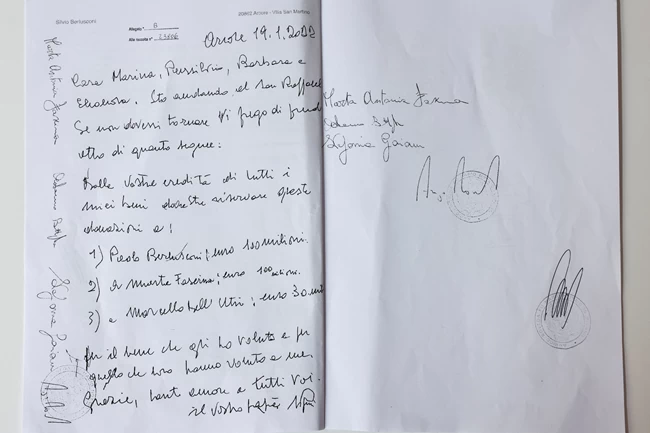 Silvio Berlusconi
20862 Arcore - Villa San Martino
Allegato " B
Alla raccolta n°
Arcore 19.1.2022
Cara Marina, Piersilvio, Barbara e
Eleonora. Sto andando al San Raffaele
Se non dovessi tornare Vi prego di prend
atto di quanto segue:
Dalla vostra eredità di tutti i
miei beni dovreste riservare queste
donazioni a:
1) Paolo Berlusconi; euro 100 milioni.
2) a Marta Fascina; euro 100 milioni.
3) a Marcello Dell'Utri; euro 30 mil
per il bene che gli ho voluto e per
quello che loro hanno voluto a me.
Grazie, tanto amore a tutti voi.
il vostro papà
Marta Antonia Fascina
Marta Antonia Fascina